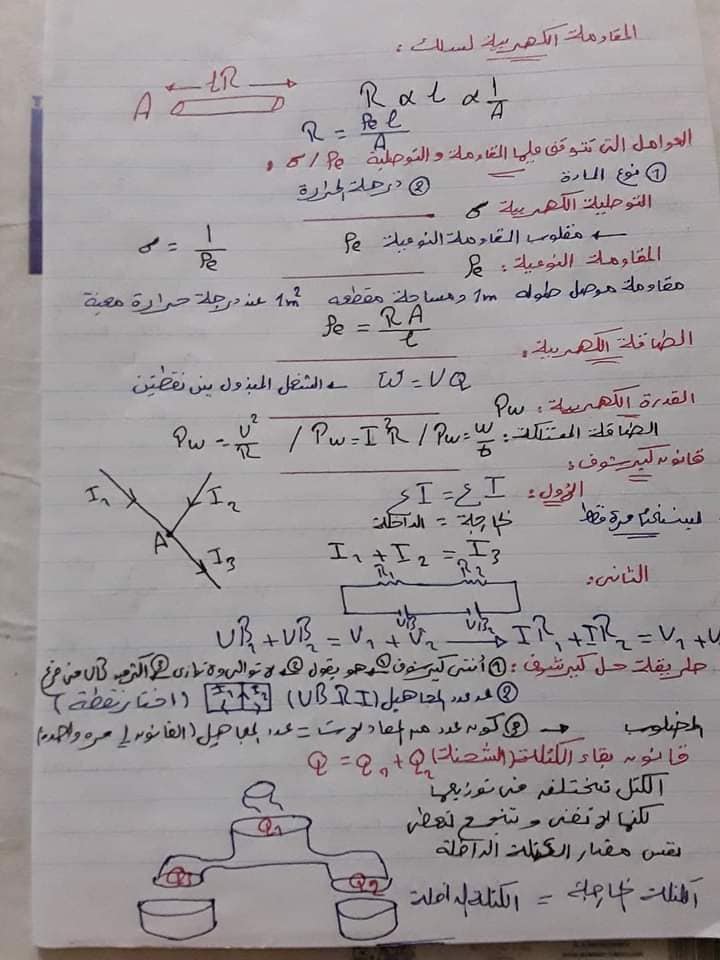 المقاومة الكهربية لسلك :
A l R
R ∝ l ∝ 1/A
R = ρe l / A
العوامل التي تتوقف عليها المقاومة والتوصلية σ / ρe .
① نوع المادة ② درجة الحرارة
التوصلية الكهربية σ
σ = 1/ρe ← مقلوب المقاومة النوعية ρe
المقاومة النوعية : ρe
مقاومة موصل طوله 1m ومساحة مقطعه 1m² عند درجة حرارة معينة
ρe = RA / l
الطاقة الكهربية :
W = VQ ← الشغل المبذول بين نقطتين
القدرة الكهربية : Pw
الطاقة المستهلكة : Pw = V²/R / Pw = I²R / Pw = W/t
قانون كيرشوف :
الأول : ΣI = ΣI
الخارجة = الداخلة
يستخدم مرة فقط
I1 I2 A I3
I1 + I2 = I3
الثاني :
R1 R2
VB1 VB2
VB1 + VB2 = V1 + V2 → IR1 + IR2 = V1 + V
طريقة حل كيرشوف : ①
② عدد المجاهيل (VBRI) I1 I2 I3 (اختار نقطة)
المطلوب → ③ كون عدد من المعادلات = عدد المجاهيل (القانون مرة واحدة)
قانون بقاء الكتلة (الشحنة) Q = Q1 + Q2
الكتل تختلف في توزيعها
لكنها لا تفنى و تتجمع لتعطى
نفس مقدار الكتلة الداخلة
الكتلة الخارجة = الكتلة الداخلة
Q1 Q2